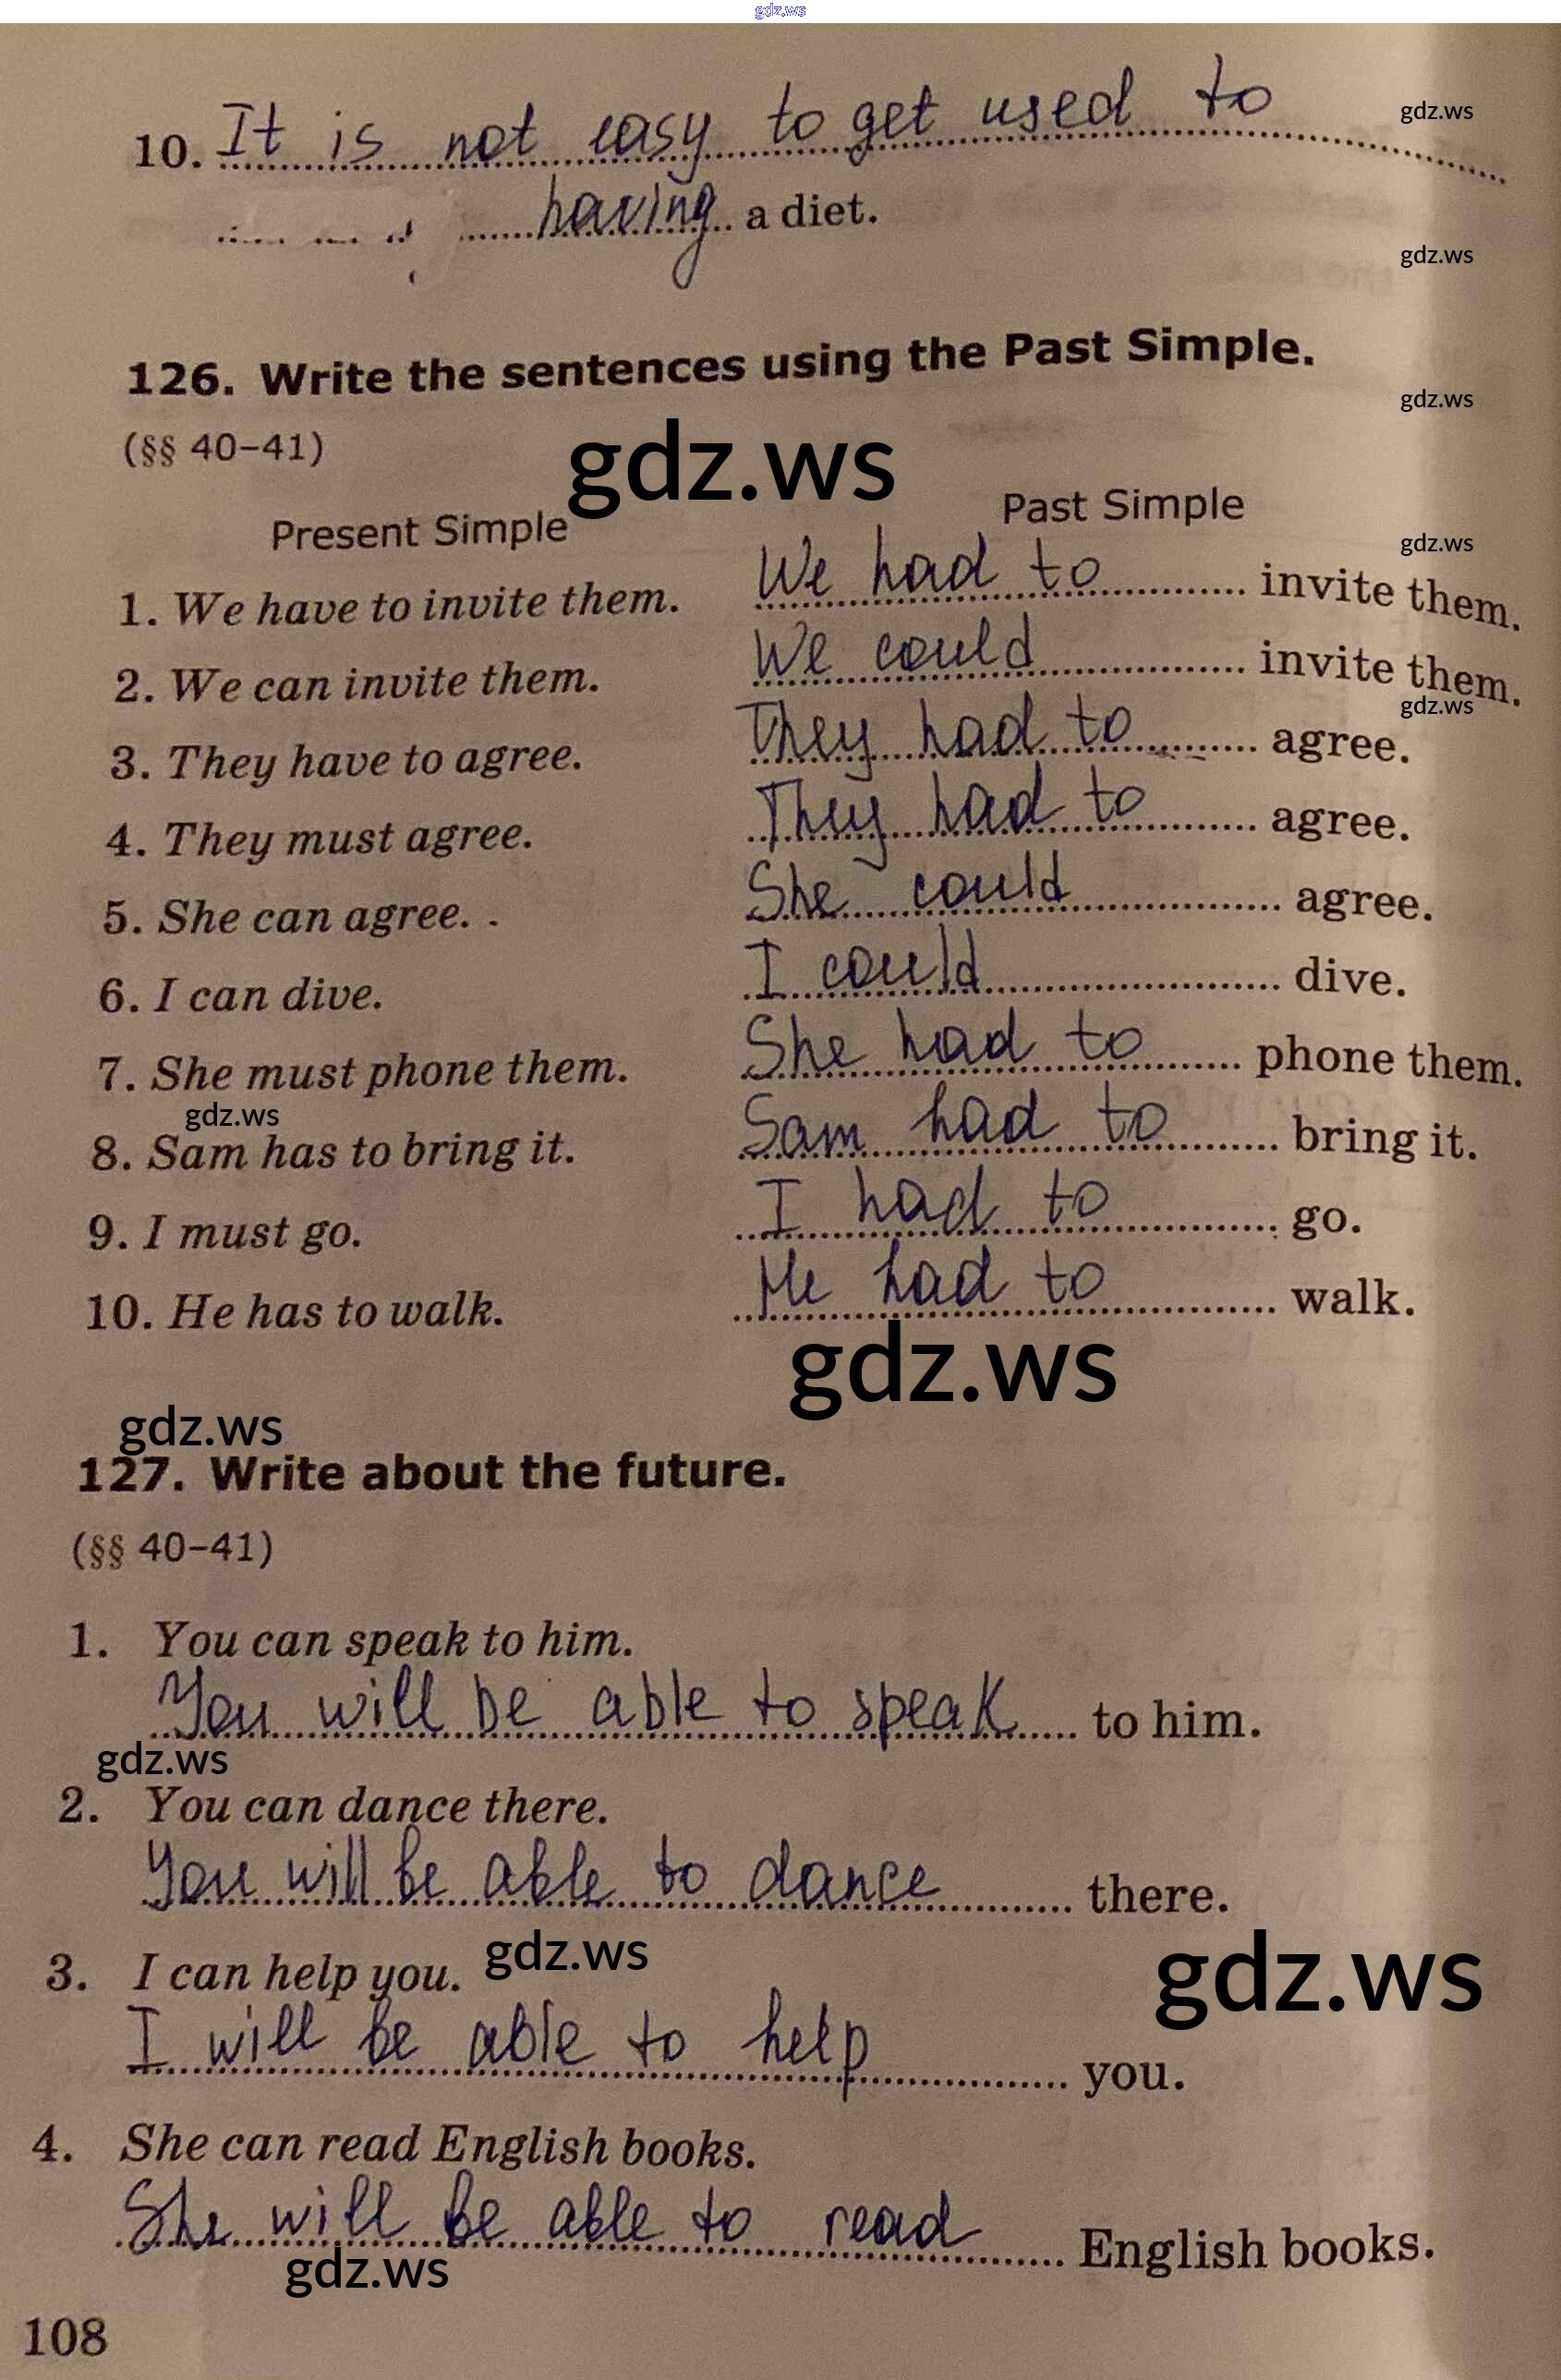 gdz.ws
10. It is not easy to get used to
gdz.ws
having a diet.
gdz.ws
126. Write the sentences using the Past Simple.
gdz.ws
(§§ 40–41)
gdz.ws
Present Simple Past Simple
gdz.ws
1. We have to invite them. We had to invite them.
2. We can invite them. We could invite them.
gdz.ws
3. They have to agree. They had to agree.
4. They must agree. They had to agree.
5. She can agree. She could agree.
6. I can dive. I could dive.
7. She must phone them. She had to phone them.
gdz.ws
8. Sam has to bring it. Sam had to bring it.
9. I must go. I had to go.
10. He has to walk. He had to walk.
gdz.ws
gdz.ws
127. Write about the future.
(§§ 40–41)
1. You can speak to him.
You will be able to speak to him.
gdz.ws
2. You can dance there.
You will be able to dance there.
gdz.ws
3. I can help you.
gdz.ws
I will be able to help you.
4. She can read English books.
She will be able to read English books.
gdz.ws
108